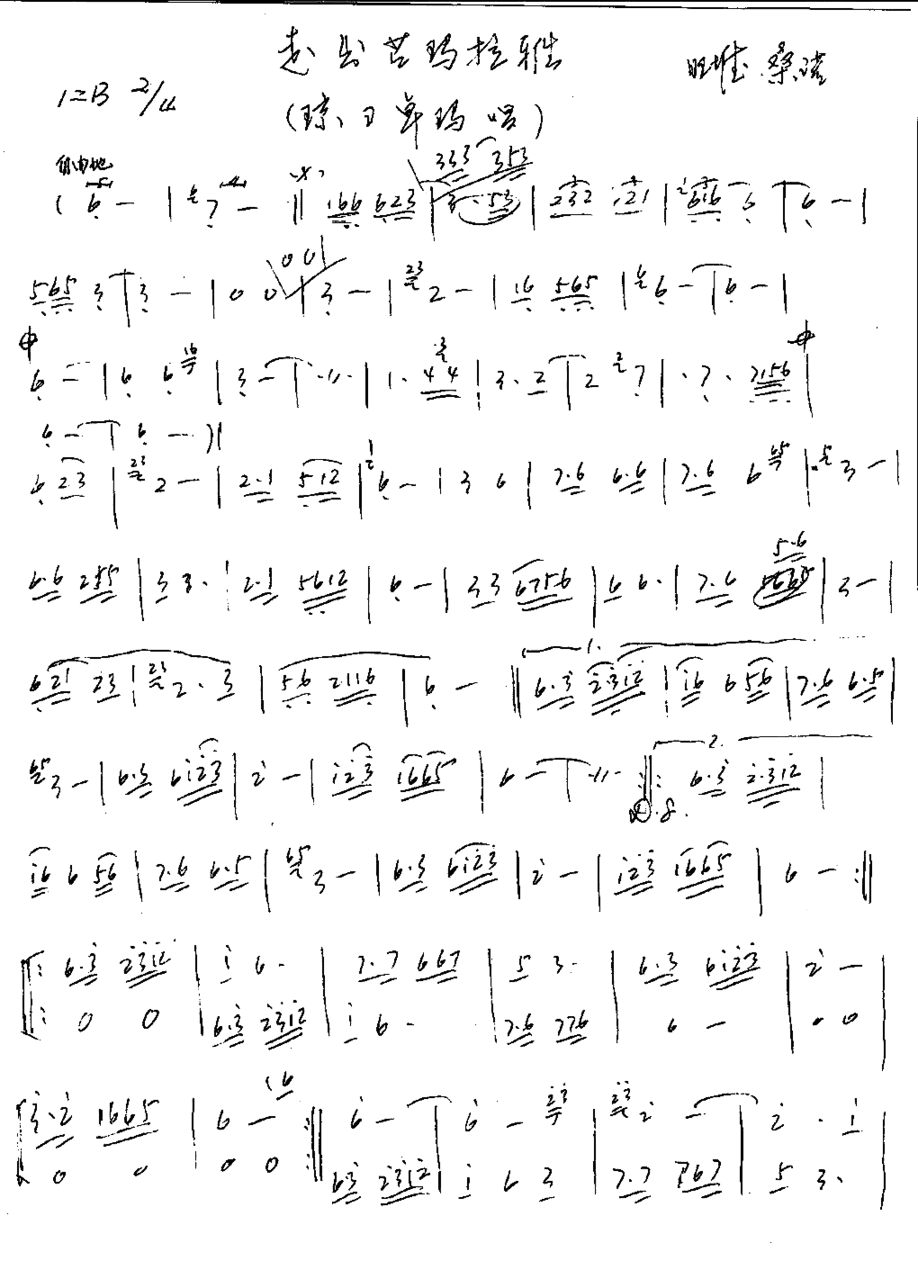 走出芒玛拉雅
旺堆 桑洁
1=B 2/4
(琼、日单玛 唱)
自由地
( 6 - | 7 - || 166 623 | 3 · 53 | 232 121 | 616 6 | 6 - |
333 353
565 3 | 3 - | 0 0 | 3 - | 23 2 - | 16 565 | 6 - | 6 - |
001
6 - | 6 6 16 | 3 - | -〃- | 1 · 44 | 3 · 2 | 2 7 | 7 · 7156 |
6 - | 6 - ) ||
6 23 | 23 2 - | 2·1 512 | 6 - | 3 6 | 7·6 6·6 | 7·6 6 | 3 - |
6·6 235 | 3 3 · | 2·1 5612 | 6 - | 33 6756 | 6 6 · | 7·6 | 3 - |
5·6
621 23 | 23 2 · 3 | 56 2116 | 6 - || 1. 6·3 2312 | 16 6 56 | 7·6 6·5 |
65 3 - | 6·3 6123 | 2 - | 123 1665 | 6 - | -〃- :|| 2. 6·3 2·312 |
D.S.
16 6 56 | 7·6 6·5 | 65 3 - | 6·3 6123 | 2 - | 123 1665 | 6 - :||
||: 6·3 2312 | 1 6 · | 7·7 667 | 5 3 · | 6·3 6123 | 2 - |
: 0 0 | 6·3 2312 | 1 6 · | 7·6 776 | 6 - | 0 0 |
3·2 1665 | 6 - :|| 6 - | 6 - 23 | 23 2 - | 2 · 1 |
0 0 | 0 0 :|| 63 2312 | 1 6 3 | 7·7 767 | 5 3 · |